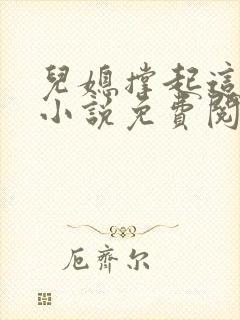 兒媳撐起這
小說免費閱
厄齊尔